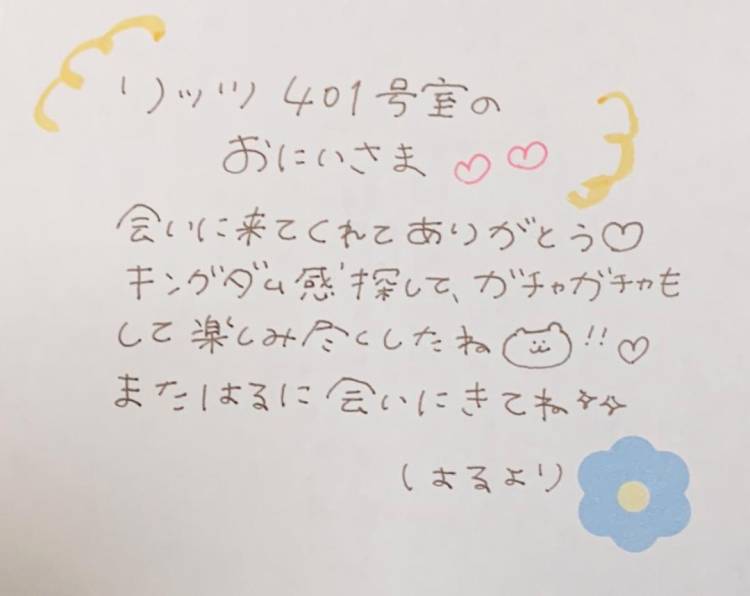 リッツ 401号室の
おにいさま♡♡
会いに来てくれてありがとう♡
キングダム感探して、ガチャガチャも
して楽しみ尽くしたね!!♡
またはるに会いにきてね✧✧
はるより